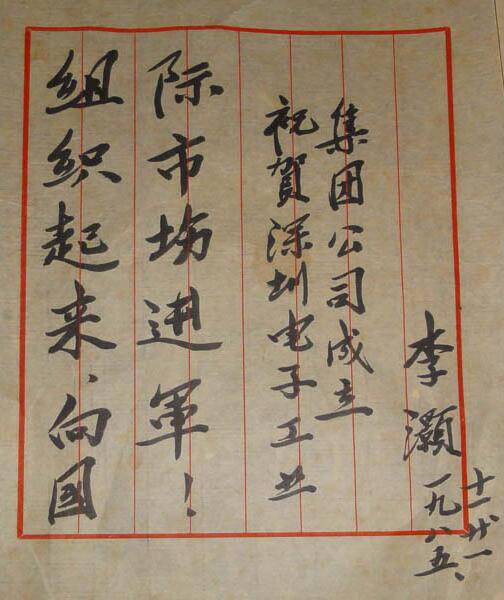 组织起来、向国
际市场进军！
祝贺深圳电子工业
集团公司成立
李灏
一九八五、
十一廿一